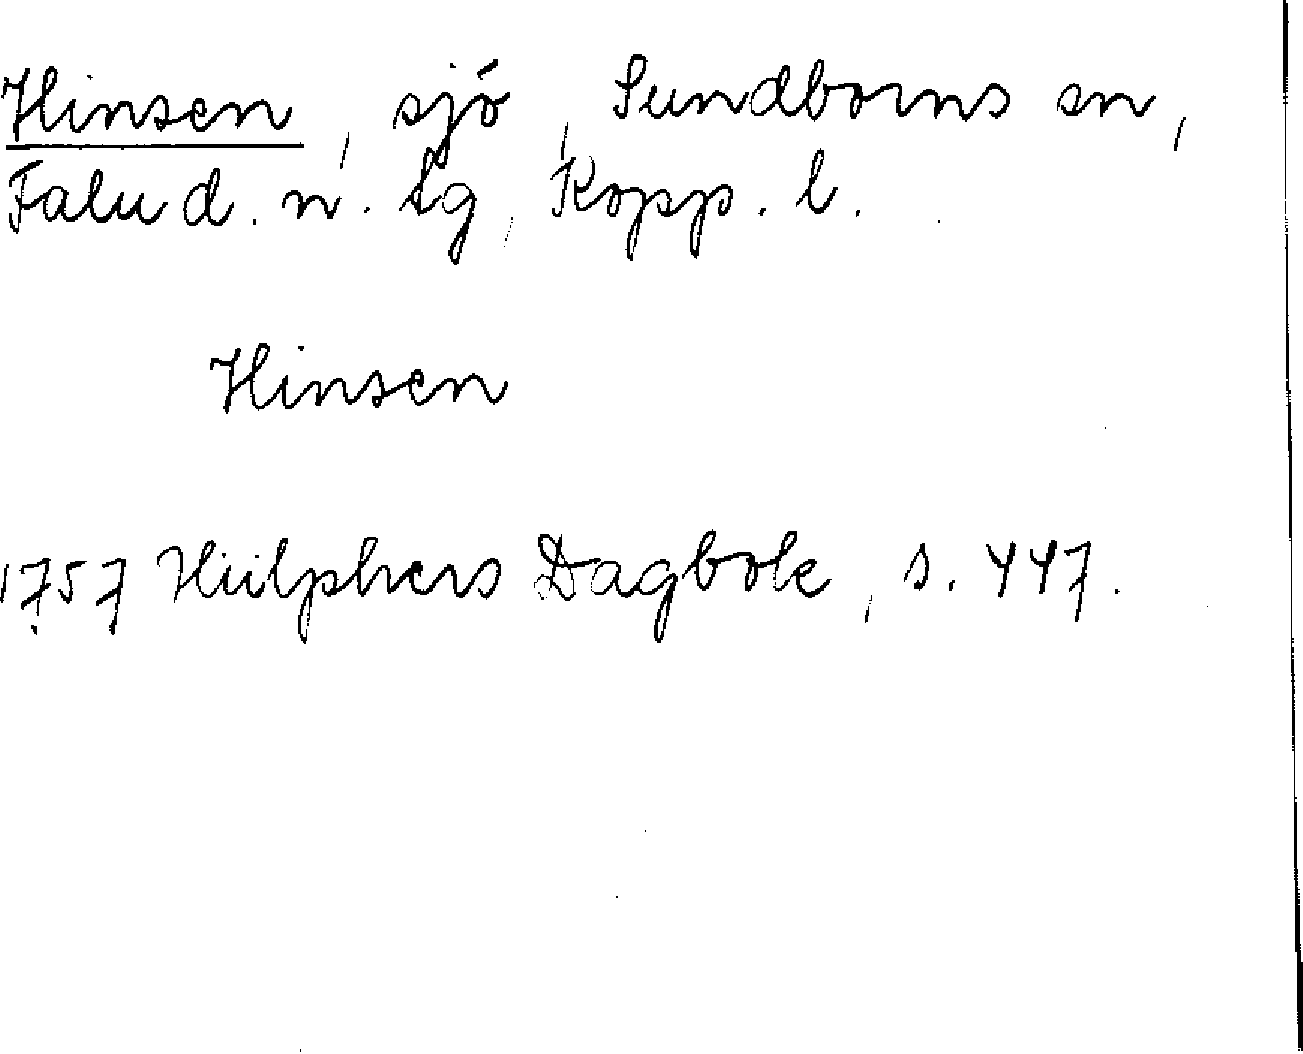 Hinsen, sjö, Sundborns sn,
Falu d. n. tg, Kopp. l.
Hinsen
1757 Hülphers Dagbok, s. 447.